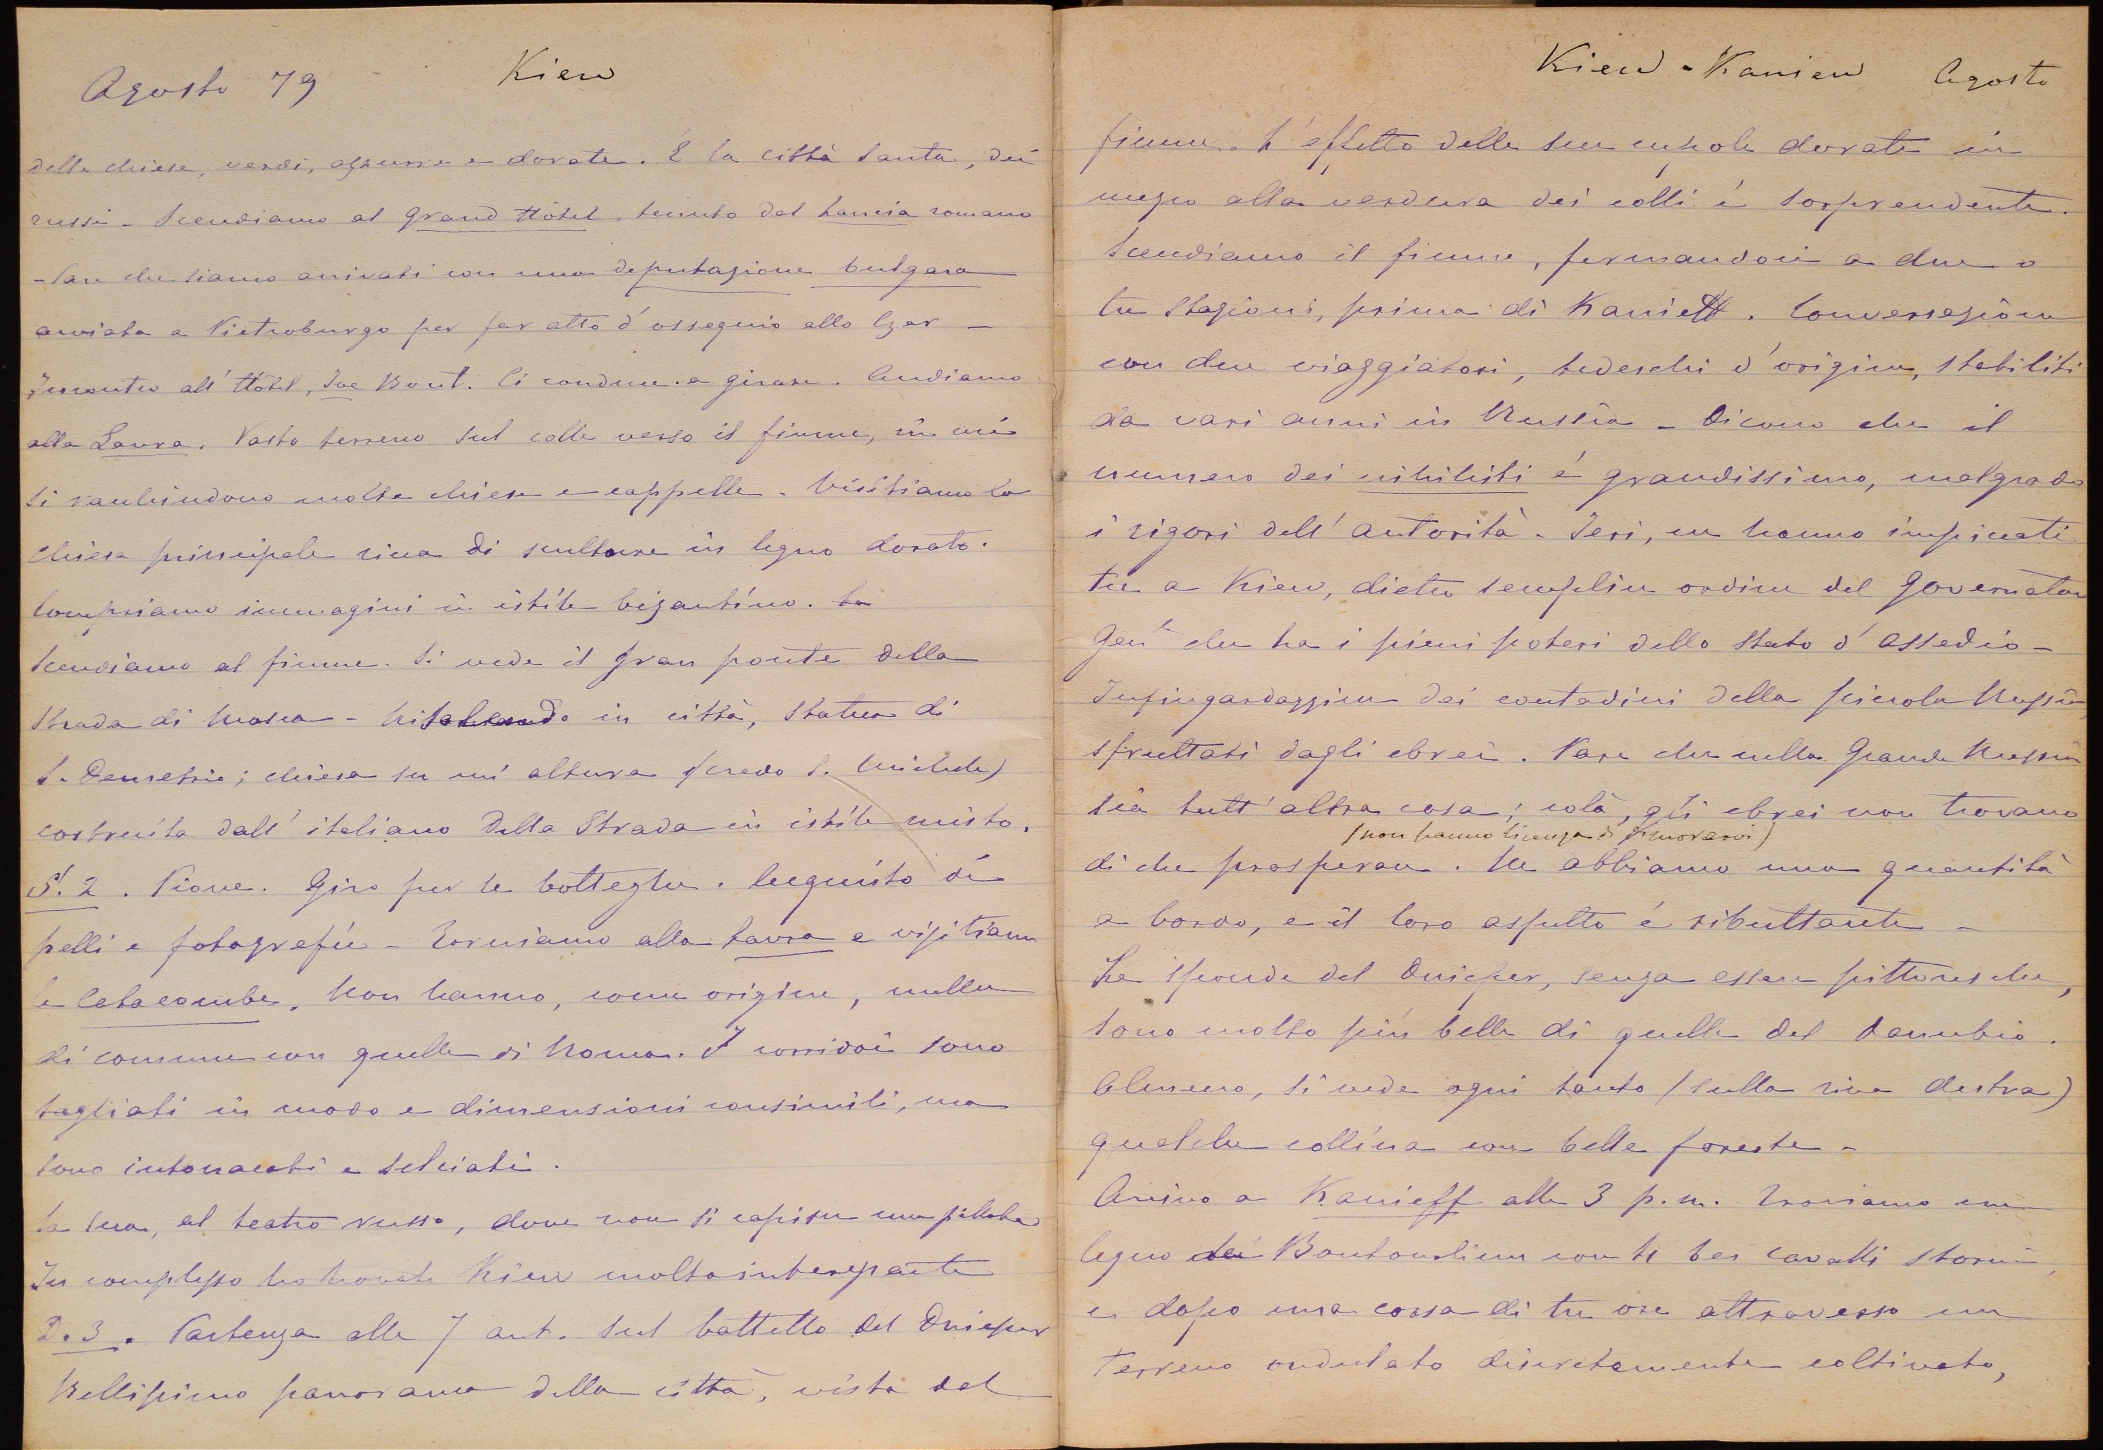 Agosto 79 Kiew
delle chiese, verdi, azzurre e dorate. É la città santa, dei
russi - Scendiamo al Grand Hôtel, tenuto dal Lancia romano
- Pare che siamo arrivati con una deputazione bulgara
inviata a Pietroburgo per far atto d'ossequio allo Czar -
Incontro all'Hôtel, Joe Bout. Ci conduce a girare. Andiamo
alla Laura. Vasto terreno sul colle verso il fiume, in cui
si racchiudono molte chiese e cappelle. Visitiamo la
chiesa principale ricca di sculture in legno dorato.
Compriamo immagini in istile bizantino.
Scendiamo al fiume. Si vede il gran ponte della
Strada di Mosca - Risalendo in città, statua di
S. Demetrio; chiesa su un'altura (credo S. Michele)
costruita dall'italiano Della Strada in istile misto.
S. 2. Piove. Giro per le botteghe. Acquisto di
pelli e fotografie - Torniamo alla Laura e visitiamo
le Catacombe. Non hanno, come origine, nulla
di comune con quelle di Roma. I corridoi sono
tagliati in modo e dimensioni consimili, ma
sono intonacati e selciati.
La sera, al teatro russo, dove non si capisce una
In complesso ho trovato Kiew molto interessante
D. 3. Partenza alle 7 ant. sul battello del Dnieper
Bellissimo panorama della città, vista dal
Kiew - Kaniew Agosto
fiume. L'effetto delle sue cupole dorate in
mezzo alla verdura dei colli é sorprendente.
Scendiamo il fiume, fermandoci a due o
tre stazioni, prima di Kanieff. Conversazione
con due viaggiatori, tedeschi d'origine, stabiliti
da vari anni in Russia - Dicono che il
numero dei nihilisti é grandissimo, malgrado
i rigori dell'autorità - Ieri, ne hanno impiccati
tre a Kiew, dietro semplice ordine del Governatore
Gen.le che ha i pieni poteri dello stato d'assedio -
Infingardaggine dei contadini della piccola Russia,
sfruttati dagli ebrei. Pare che nella Grande Russia
sia tutt'altra cosa; colà, gli ebrei non trovano
(non hanno licenza di dimorarvi)
di che prosperare. Ne abbiamo una quantità
a bordo, e il loro aspetto é ributtante -
Le sponde del Dnieper, senza essere pittoresche,
sono molto più belle di quelle del Danubio.
Almeno, si vede ogni tanto (sulla riva destra)
qualche collina con belle foreste -
Arrivo a Kanieff alle 3 p.m. Troviamo un
legno dei con tre bei cavalli storni,
e dopo una corsa di tre ore attraverso un
terreno ondulato discretamente coltivato,